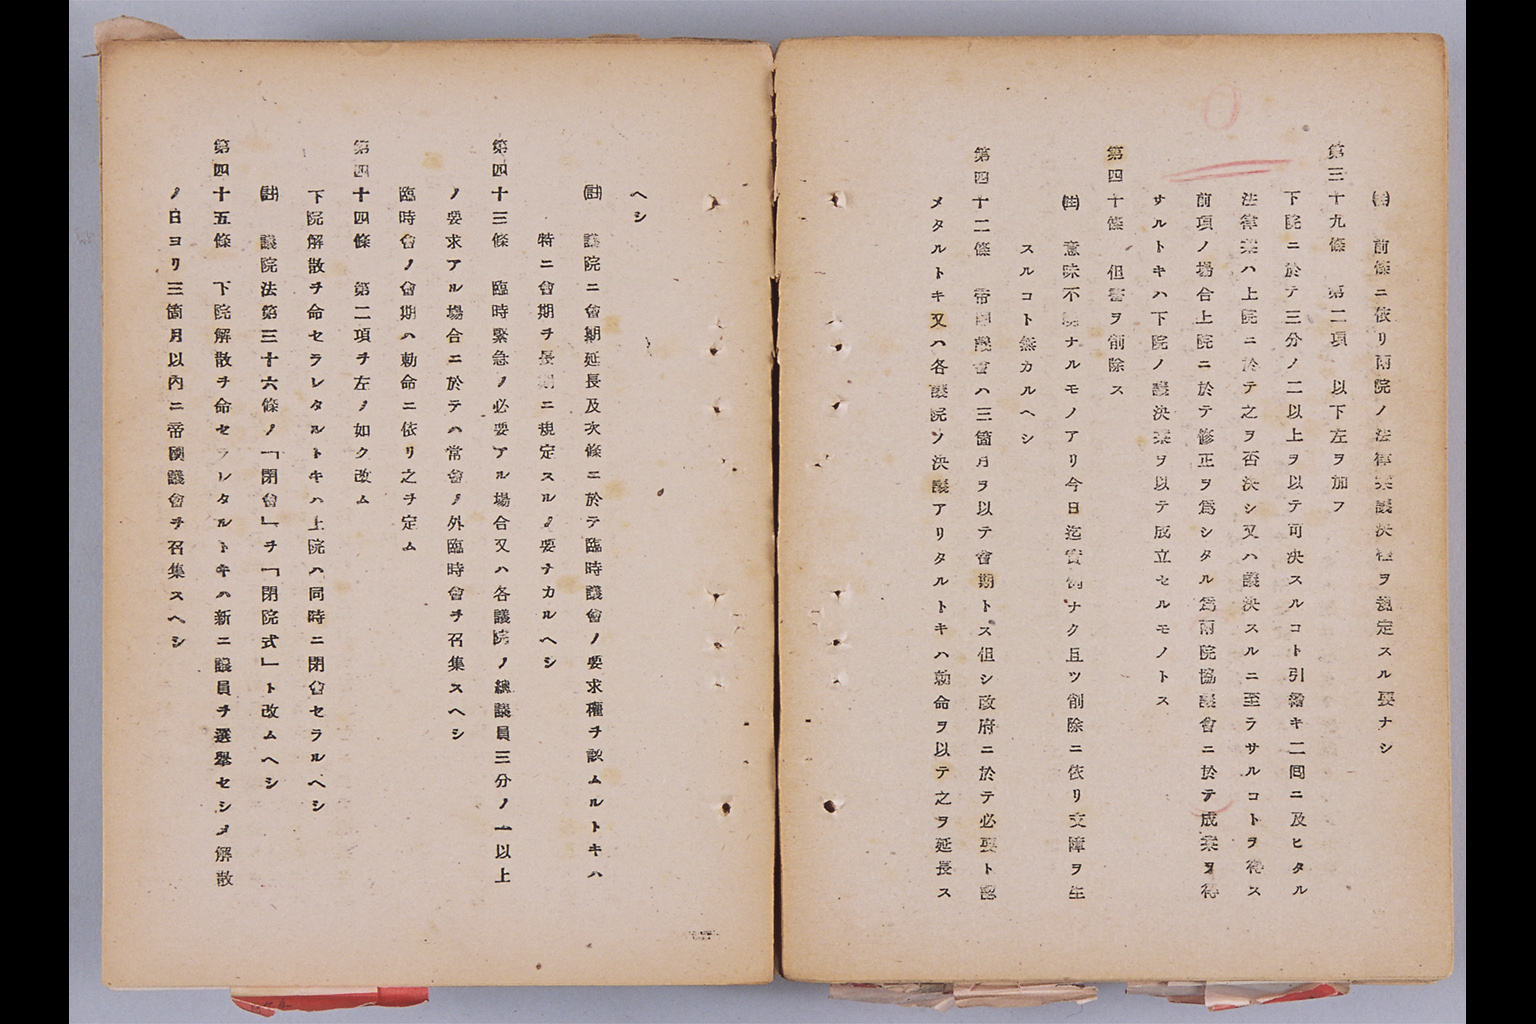 (註)　前條ニ依リ兩院ノ法律案議決權ヲ規定スル要ナシ
第三十九條　第二項　以下左ヲ加フ
下院ニ於テ三分ノ二以上ヲ以テ可決スルコト引續キ二囘ニ及ヒタル
法律案ハ上院ニ於テ之ヲ否決シ又ハ議決スルニ至ラサルコトヲ得ス
前項ノ場合上院ニ於テ修正ヲ爲シタル爲兩院協議會ニ於テ成案ヲ得
サルトキハ下院ノ議決案ヲ以テ成立セルモノトス
第四十條　但書ヲ削除ス
(註)　意味不ナルモノアリ今日迄實例ナク且ツ削除ニ依リ支障ヲ生
スルコト無カルヘシ
第四十二條　帝國議會ハ三箇月ヲ以テ會期トス但シ政府ニ於テ必要ト認
メタルトキ又ハ各議院ソ決議アリタルトキハ勅命ヲ以テ之ヲ延長ス
ヘシ
(註)　議院ニ會期延長及次條ニ於テ臨時議會ノ要求權ヲ認ムルトキハ
特ニ會期ヲ長期ニ規定スルノ要ナカルヘシ
第四十三條　臨時緊急ノ必要アル場合又ハ各議院ノ總議員三分ノ一以上
ノ要求アル場合ニ於テハ常會ノ外臨時會ヲ召集スヘシ
臨時會ノ會期ハ勅命ニ依リ之ヲ定ム
第四十四條　第二項ヲ左ノ如ク改ム
下院解散ヲ命セラレタルトキハ上院ハ同時ニ閉會セラルヘシ
(註)　議院法第三十六條ノ「閉會」ヲ「閉院式」ト改ムヘシ
第四十五條　下院解散ヲ命セラレタルトキハ新ニ議員ヲ選擧セシメ解散
ノ日ヨリ三箇月以內ニ帝國議會ヲ召集スヘシ